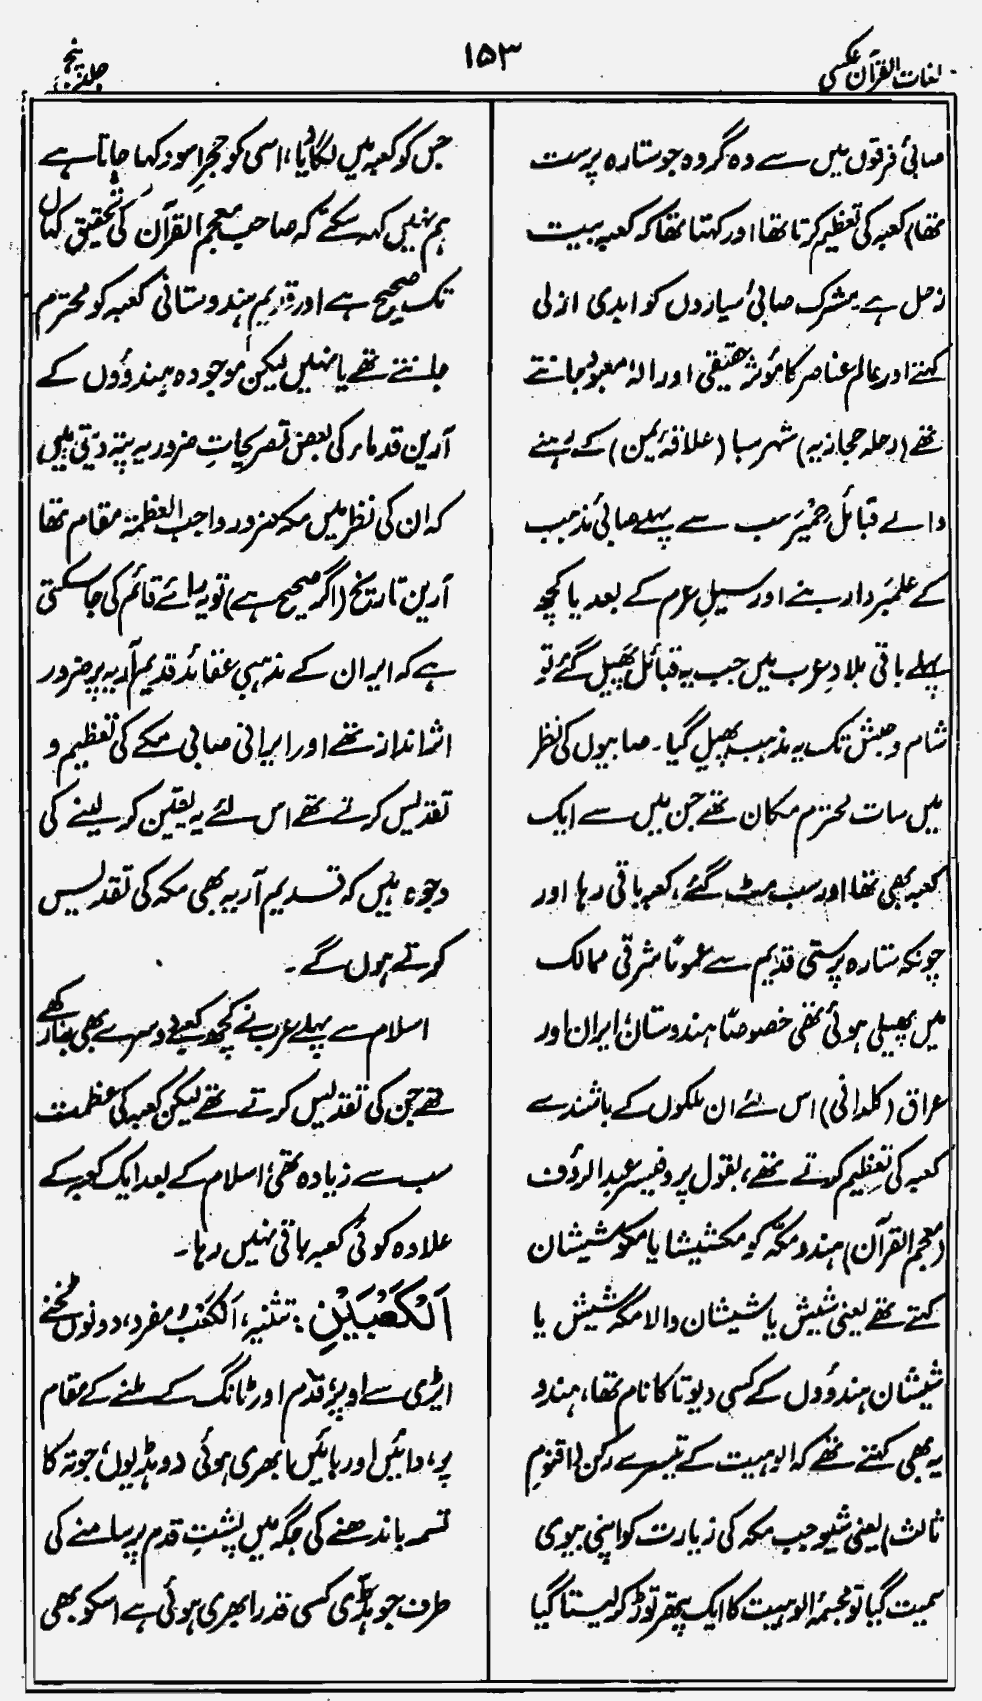 لغات القرآن عکسی
۱۵۳
جلد پنجم
صابئ فرقوں میں سے وہ گروہ جو ستارہ پرست
تھا) کعبہ کی تعظیم کرتا تھا اور کہتا تھا کہ کعبہ بیت
زحل ہے مشرک صابئ سیاروں کو ابدی ازلی
کہتے اور عالم عناصر کا مؤثر حقیقی اور الٰہ معبود جانتے
تھے (رحلہ حجازیہ) شہر سبا (علاقۂ یمن) کے رہنے
والے قبائل حِمْیَر سب سے پہلے صابئ مذہب
کے علمبردار بنے اور سیلِ عرم کے بعد یا کچھ
پہلے باقی بلادِ عرب میں جب یہ قبائل پھیل گئے تو
شام و حبش تک یہ مذہب پھیل گیا۔ صابیوں کی نظر
میں سات محترم مکان تھے جن میں سے ایک
کعبہ بھی تھا اور سب مٹ گئے، کعبہ باقی رہا اور
چونکہ ستارہ پرستی قدیم سے عموماً مشرقی ممالک
میں پھیلی ہوئی تھی خصوصاً ہندوستان، ایران اور
عراق (کلدانی) اس لئے ان ملکوں کے باشندے
کعبہ کی تعظیم کرتے تھے، بقول پروفیسر عبدالرؤف
(معجم القرآن) ہندو مکّہ کو مکشیشا یا مکوشیشان
کہتے تھے یعنی شیش یا شیشان والا مکہ شیش یا
شیشان ہندوؤں کے کسی دیوتا کا نام تھا، ہندو
یہ بھی کہتے تھے کہ الوہیت کے تیسرے رکن (اقنومِ
ثالث) یعنی شیو جب مکہ کی زیارت کو اپنی بیوی
سمیت گیا تو مجسمۂ الوہیت کا ایک پتھر توڑ کر لیتا گیا
جس کو کعبہ میں لگا دیا، اسی کو حجرِ اسود کہا جاتا ہے
ہم نہیں کہہ سکتے کہ صاحب معجم القرآن کی تحقیق کہاں
تک صحیح ہے اور قدیم ہندوستانی کعبہ کو محترم
جانتے تھے یا نہیں لیکن موجودہ ہندوؤں کے
آرین قدماء کی بعض تصریحاتِ ضرور یہ پتہ دیتی ہیں
کہ ان کی نظر میں مکہ ضرور واجب العظمۃ مقام تھا
آرین تاریخ (اگر صحیح ہے) تو یہ رائے قائم کی جا سکتی
ہے کہ ایران کے مذہبی عقائد قدیم آریہ پر ضرور
اثر انداز تھے اور ایرانی صابی مکے کی تعظیم و
تقدیس کرتے تھے اس لئے یہ یقین کر لینے کی
وجوہ ہیں کہ قدیم آریہ بھی مکہ کی تقدیس
کرتے ہوں گے۔
اسلام سے پہلے عرب نے کچھ کعبے دوسرے بھی بنا رکھے
تھے جن کی تقدیس کرتے تھے لیکن کعبہ کی عظمت
سب سے زیادہ تھی، اسلام کے بعد ایک کعبہ کے
علاوہ کوئی کعبہ باقی نہیں رہا۔
اَلْکَعْبَیْنِ: تثنیہ، اَلْکَعْبُ مفرد، دونوں ٹخنے
ایڑی سے اوپر، قدم اور ٹانگ کے ملنے کے مقام
پر، دائیں اور بائیں ابھری ہوئی دو ہڈیوں، جوتہ کا
تسمہ باندھنے کی جگہ میں پشتِ قدم پر سامنے کی
طرف جو ہڈی کسی قدر ابھری ہوئی ہے اسکو بھی